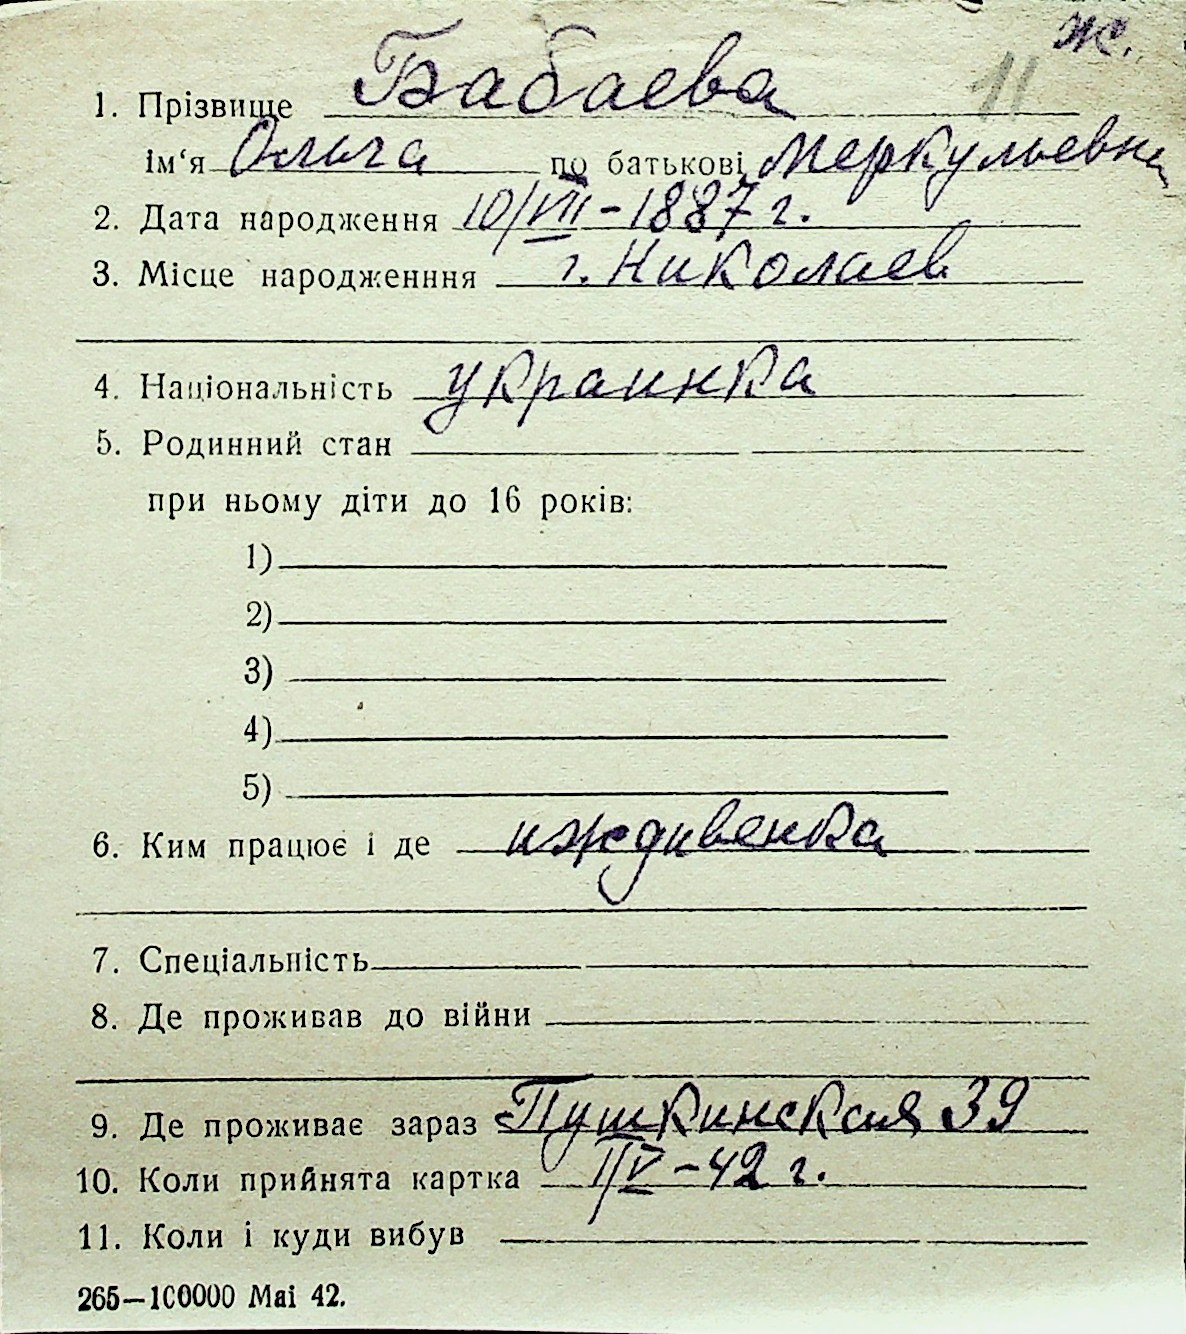 ж.
11
1. Прізвище Бабаева
Ім‘я Ольга по батькові Меркульевна
2. Дата народження 10/VII-1887 г.
3. Місце народженння г. Николаев
4. Національність украинка
5. Родинний стан
при ньому діти до 16 років:
1)
2)
3)
4)
5)
6. Ким працює і де иждивенка
7. Спеціальність
8. Де проживав до війни
9. Де проживає зараз Пушкинская 39
10. Коли прийнята картка 1/V-42 г.
11. Коли і куди вибув
265—100000 Mai 42.